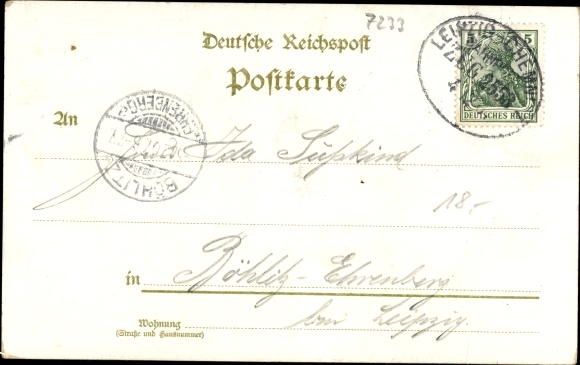 7233
Deutsche Reichspost
Postkarte
5 5
DEUTSCHES REICH
LEIPZIG-CHEMN
ZUG
EHRENBERG
BÖHLITZ
An
Ida Süßkind
18.-
in Böhlitz-Ehrenberg
bei Leipzig.
Wohnung
(Straße und Hausnummer)